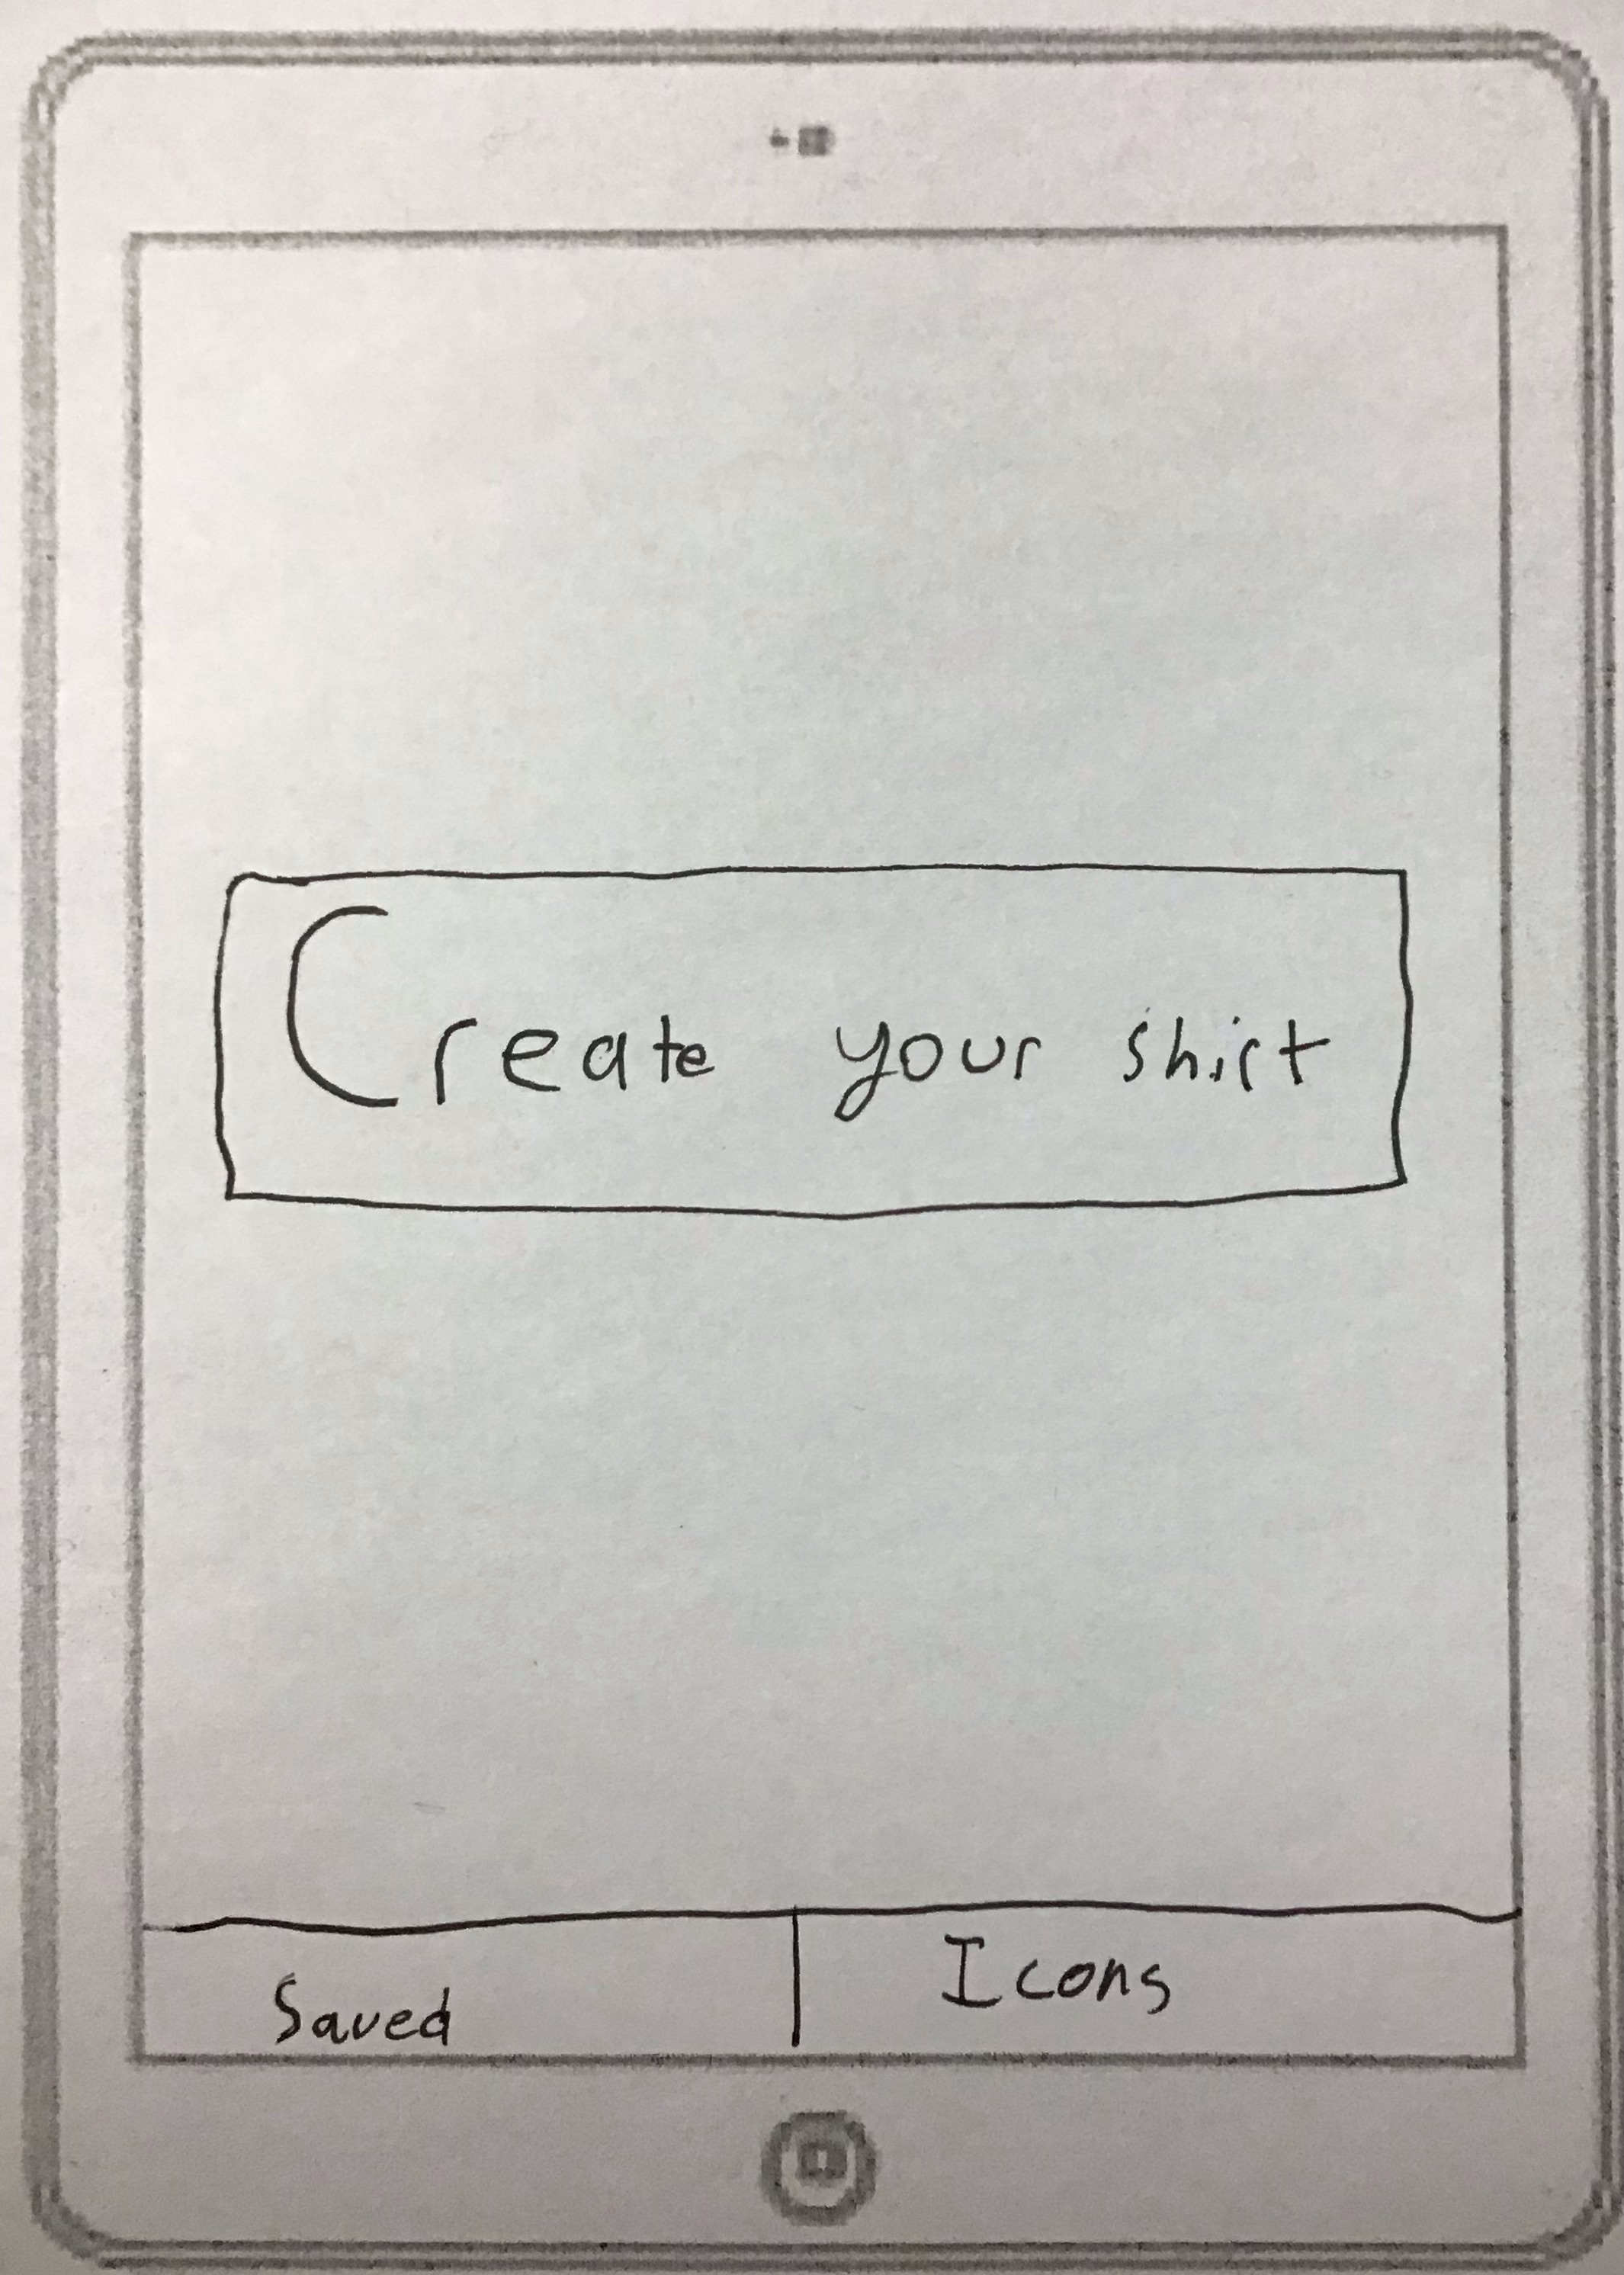 Create your shirt
Saved
Icons